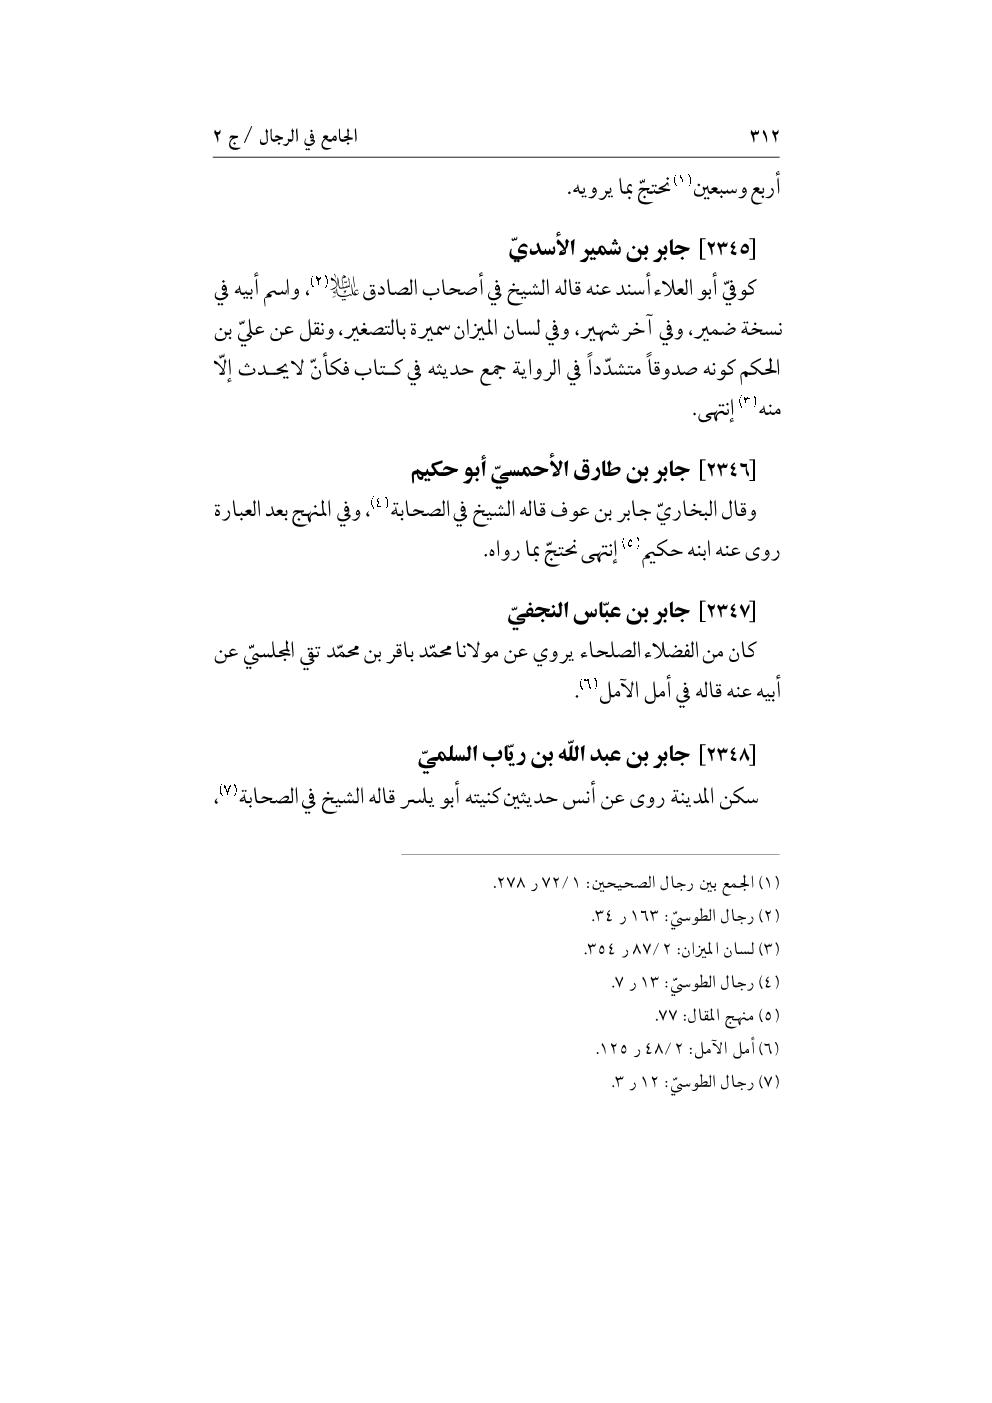 ٣١٢ الجامع في الرجال / ج ٢
أربع وسبعين(١) نحتجّ بما يرويه.
[٢٣٤٥] جابر بن شمير الأسديّ
كوفيّ أبو العلاء أسند عنه قاله الشيخ في أصحاب الصادق عليه السلام(٢)، واسم أبيه في
نسخة ضمير، وفي آخر شهير، وفي لسان الميزان سميرة بالتصغير، ونقل عن عليّ بن
الحكم كونه صدوقاً متشدّداً في الرواية جمع حديثه في كـتاب فكأنّ لا يحـدث إلّا
منه(٣) إنتهى.
[٢٣٤٦] جابر بن طارق الأحمسيّ أبو حكيم
وقال البخاريّ جابر بن عوف قاله الشيخ في الصحابة(٤)، وفي المنهج بعد العبارة
روى عنه ابنه حكيم(٥) إنتهى نحتجّ بما رواه.
[٢٣٤٧] جابر بن عبّاس النجفيّ
كان من الفضلاء الصلحاء يروي عن مولانا محمّد باقر بن محمّد تقي المجلسيّ عن
أبيه عنه قاله في أمل الآمل(٦).
[٢٣٤٨] جابر بن عبد اللّه بن ريّاب السلميّ
سكن المدينة روى عن أنس حديثين كنيته أبو يلسر قاله الشيخ في الصحابة(٧)،
(١) الجمع بين رجال الصحيحين: ١/ ٧٢ ر ٢٧٨.
(٢) رجال الطوسيّ: ١٦٣ ر ٣٤.
(٣) لسان الميزان: ٢/ ٨٧ ر ٣٥٤.
(٤) رجال الطوسيّ: ١٣ ر ٧.
(٥) منهج المقال: ٧٧.
(٦) أمل الآمل: ٢/ ٤٨ ر ١٢٥.
(٧) رجال الطوسيّ: ١٢ ر ٣.